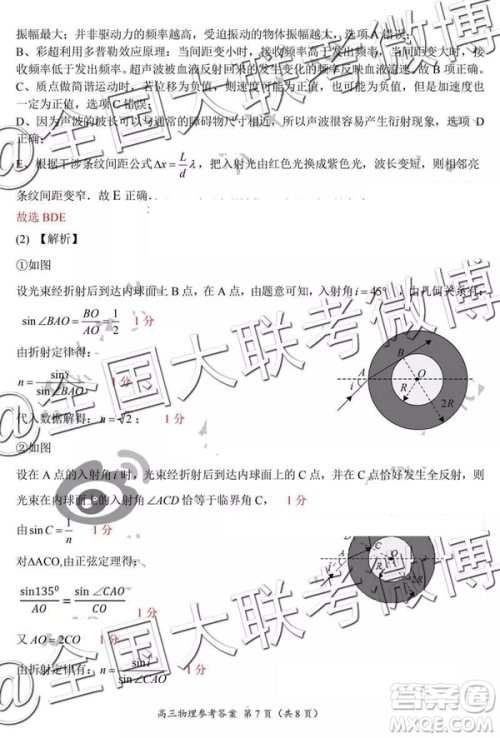 振幅最大；并非驱动力的频率越高，受迫振动的物体振幅越大，选项A错误；
B、彩超利用多普勒效应原理：当间距变小时，接收频率高于发出频率；当间距变大时，接
收频率低于发出频率。超声波被血液反射回来的发生变化的频率反映血液流速。故B项正确。
C、质点做简谐运动时，若位移为负值，则速度可能为正值，也可能为负值，但是加速度也
一定为正值，选项C错误；
D、因为声波的波长可以与通常的障碍物尺寸相比，所以声波很容易产生衍射现象，选项D
正确；
E、根据干涉条纹间距公式Δx=L/d λ，把入射光由红色光换成紫色光，波长变短，则相邻亮
条纹间距变窄．故E正确．
故选BDE
(2) 【解析】
①如图
设光束经折射后到达内球面上B点，在A点，由题意可知，入射角i=45°，由几何关系有：
sin∠BAO=BO/AO=1/2 1分
由折射定律得：
n=sini/sin∠BAO 1分
代入数据解得：n=√2； 1分
②如图
设在A点的入射角i时，光束经折射后到达内球面上C点，恰在C点发生全反射，则
光束在内球面上的入射角∠ACD恰等于临界角C， 1分
由sinC=1/n 1分
对ΔACO,由正弦定理得:
sin135⁰/AO=sin∠CAO/CO 1分
又 AO=2CO 1分
由折射定律有：n=sini/sin∠CAO 1分
高三物理参考答案 第7页（共8页）
i
A
B
O
R
2R
A
C
O
R
2R
@全国大联考微博
@全国大联考微博